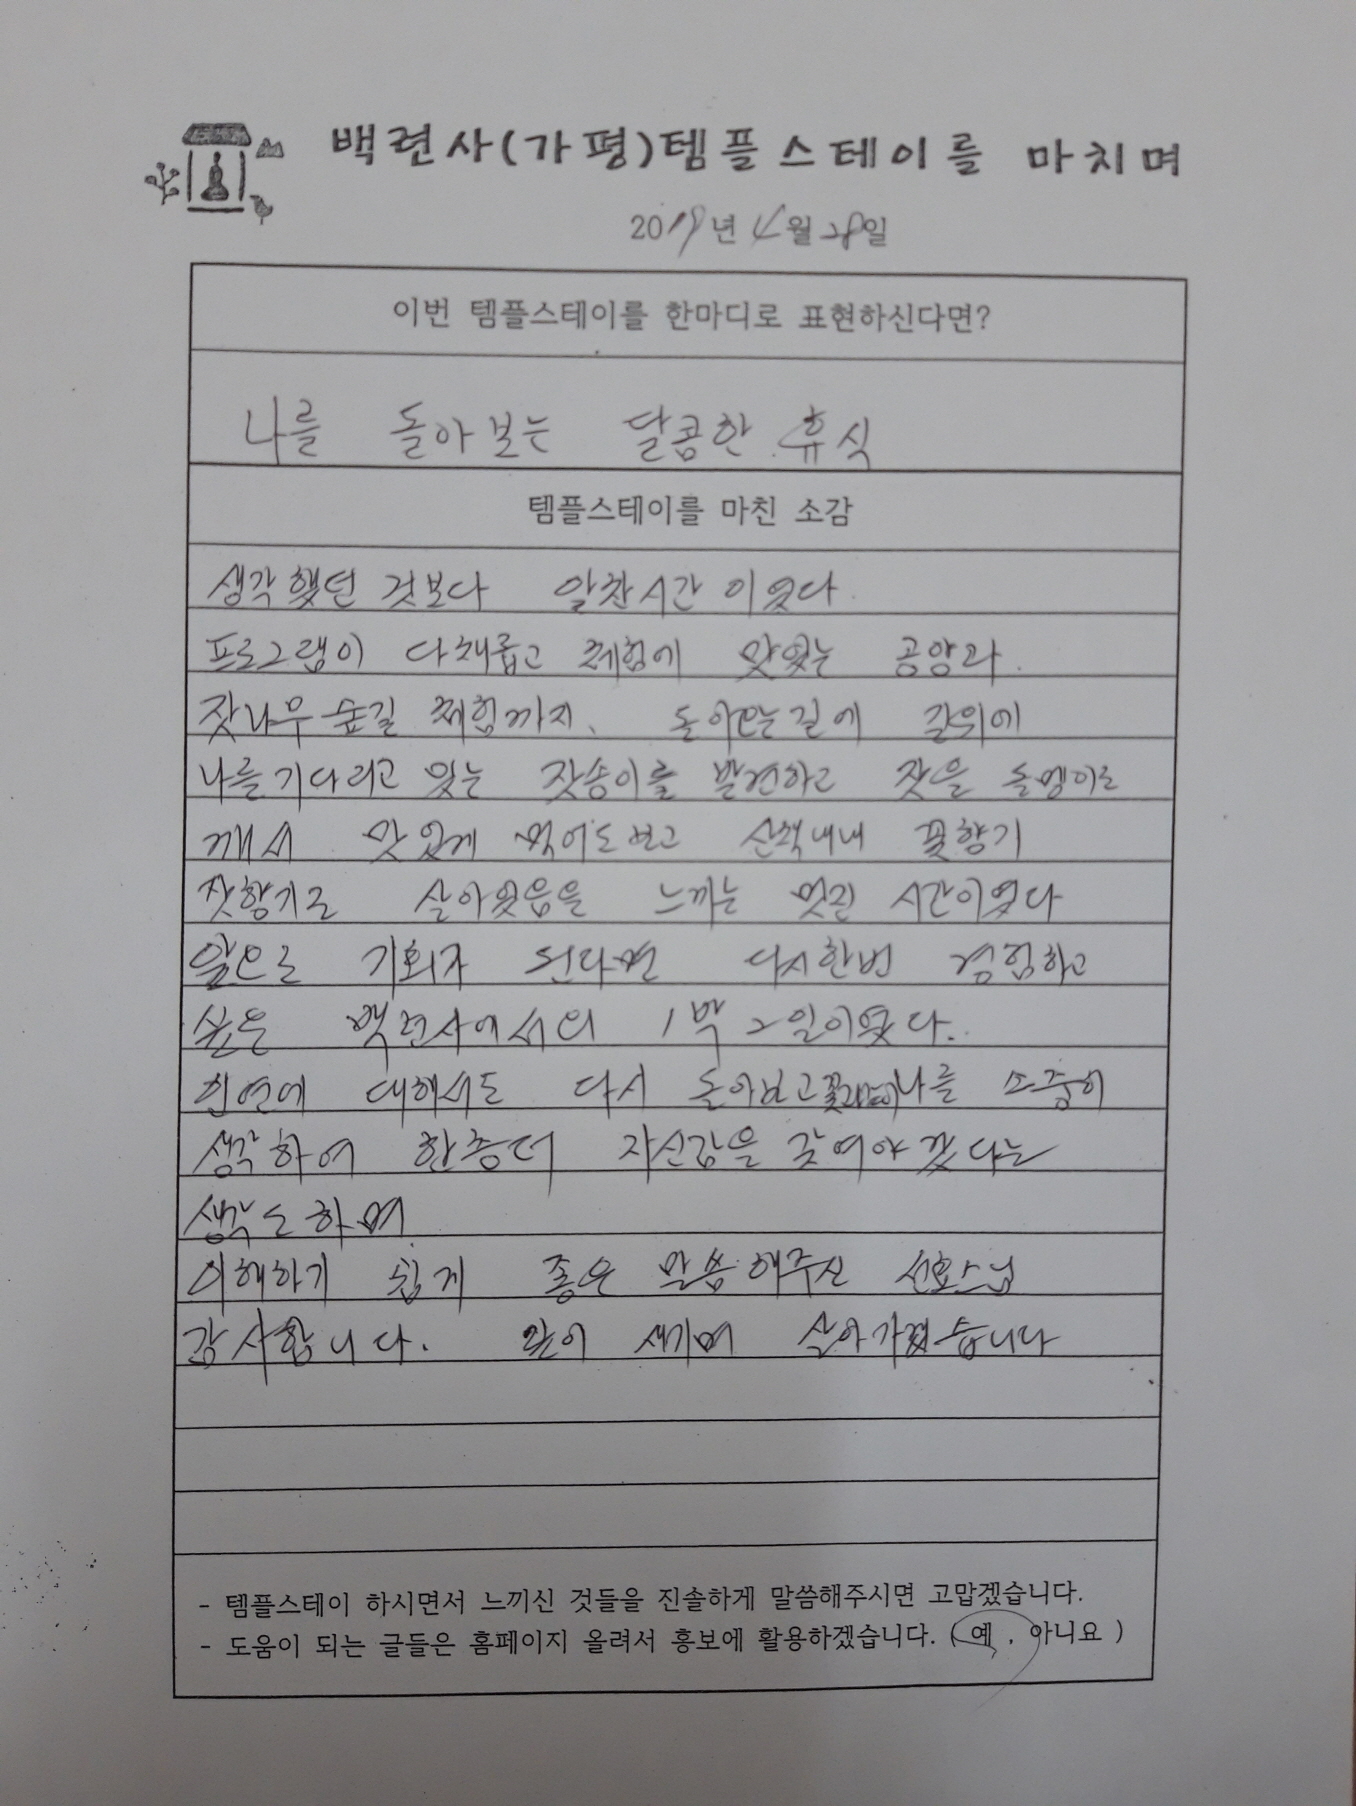 백련사(가평)템플스테이를 마치며
2019년 4월 28일
이번 템플스테이를 한마디로 표현하신다면?
나를 돌아보는 달콤한 휴식
템플스테이를 마친 소감
생각했던 것보다 알찬시간이었다.
프로그램이 다채롭고 체험에 맛있는 공양과
잣나무숲길 체험까지. 돌아오는길에 길위에
나를기다리고 있는 잣송이를 발견하고 잣을 돌멩이로
깨서 맛있게 먹어도보고 산책내내 꽃향기
잣향기로 살아있음을 느끼는 멋진 시간이었다
앞으로 기회가 된다면 다시한번 경험하고
싶은 백련사에서의 1박2일이였다.
인연에 대해서도 다시 돌아보고 나를 소중히
생각하여 한층더 자신감을 갖여야겠다는
생각도하며
이해하기 쉽게 좋은 말씀해주신 선효스님
감사합니다. 깊이 새기며 살아가겠습니다
- 템플스테이 하시면서 느끼신 것들을 진솔하게 말씀해주시면 고맙겠습니다.
- 도움이 되는 글들은 홈페이지 올려서 홍보에 활용하겠습니다. ( 예 , 아니요 )